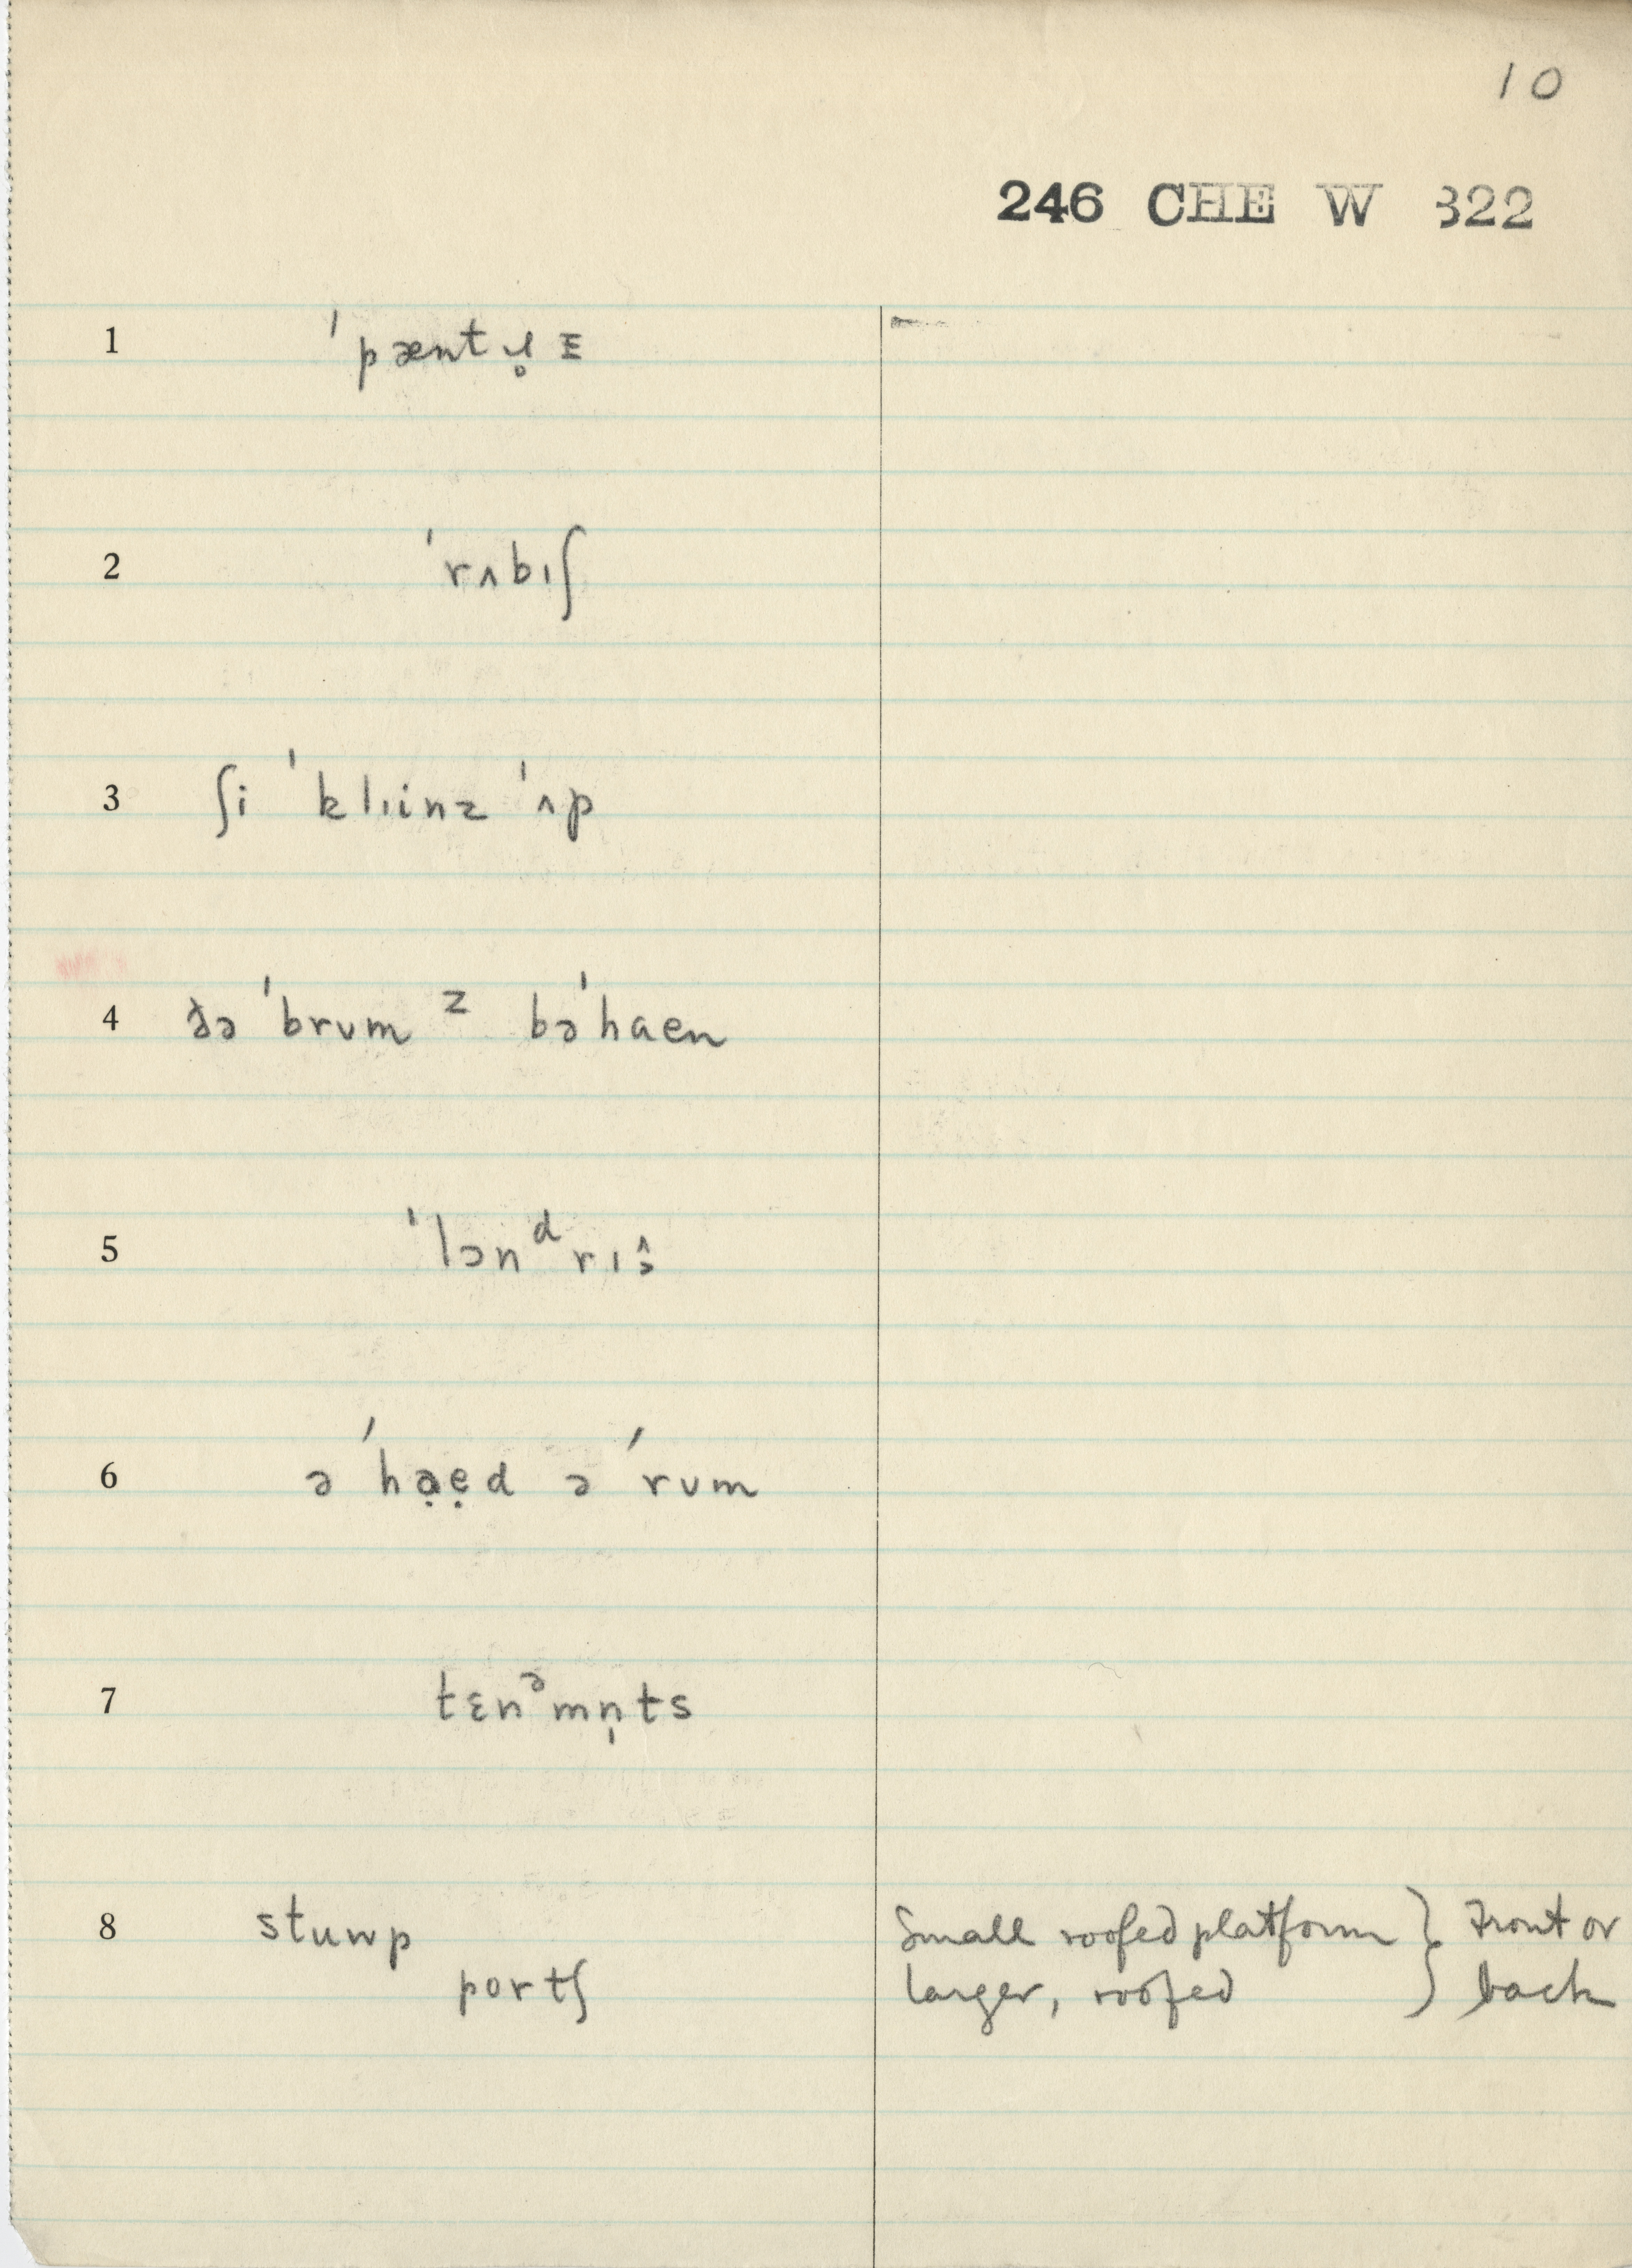 10
246 CHE W 322
1 ˈpæntɹ̥ɪ ≡
2 ˈrʌbɪʃ
3 ʃi ˈklɪinz ˈʌp
4 ðə ˈbrʊm ᶻ bəˈhaen
5 ˈlɔnᵈrɪ
6 ə ˈhạẹd ə ˈrʊm
7 tɛnᵊmn̩ts
8 stuwp Small roofed platform } Front or
portʃ larger, roofed } back